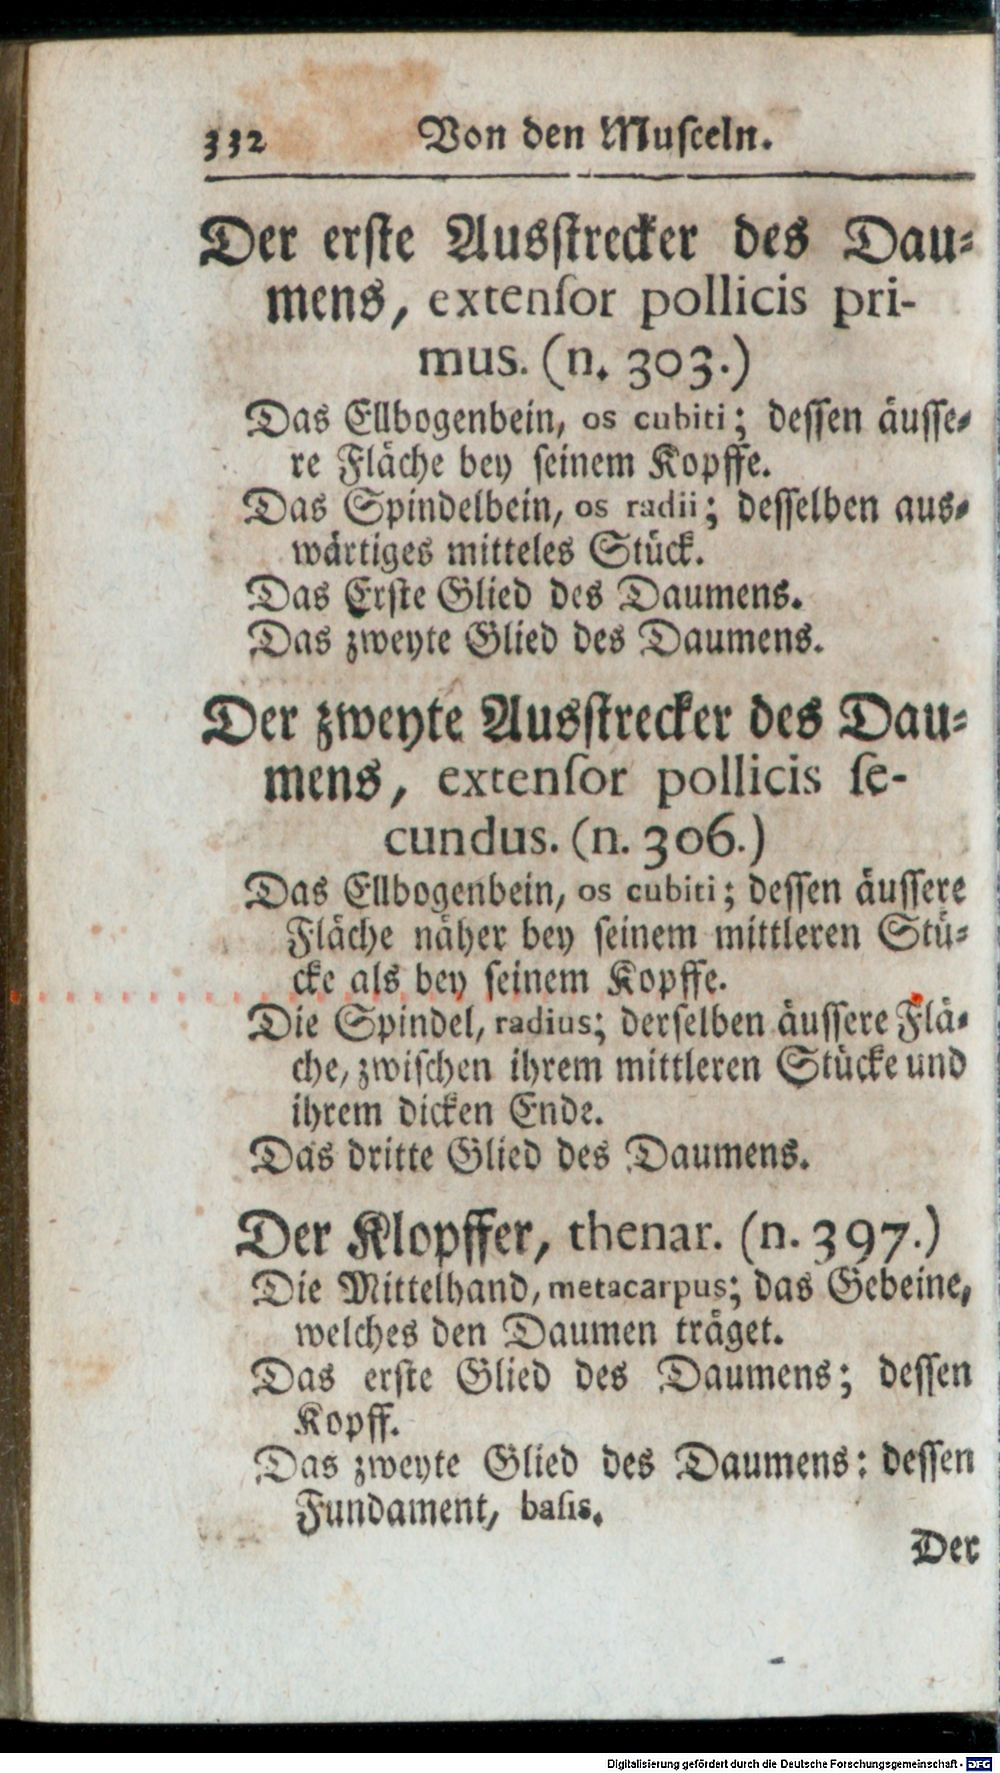 332 Von den Musceln.
Der erste Ausstrecker des Dau-
mens, extensor pollicis pri-
mus. (n. 303.)
Das Ellbogenbein, os cubiti; dessen äusse-
re Fläche bey seinem Kopffe.
Das Spindelbein, os radii; desselben aus-
wärtiges mitteles Stück.
Das Erste Glied des Daumens.
Das zweyte Glied des Daumens.
Der zweyte Ausstrecker des Dau-
mens, extensor pollicis se-
cundus. (n. 306.)
Das Ellbogenbein, os cubiti; dessen äussere
Fläche näher bey seinem mittleren Stü-
cke als bey seinem Kopffe.
Die Spindel, radius; derselben äussere Flä-
che, zwischen ihrem mittleren Stücke und
ihrem dicken Ende.
Das dritte Glied des Daumens.
Der Klopffer, thenar. (n. 397.)
Die Mittelhand, metacarpus; das Gebeine,
welches den Daumen träget.
Das erste Glied des Daumens; dessen
Kopff.
Das zweyte Glied des Daumens: dessen
Fundament, basis.
Der
Digitalisierung gefördert durch die Deutsche Forschungsgemeinschaft - DFG